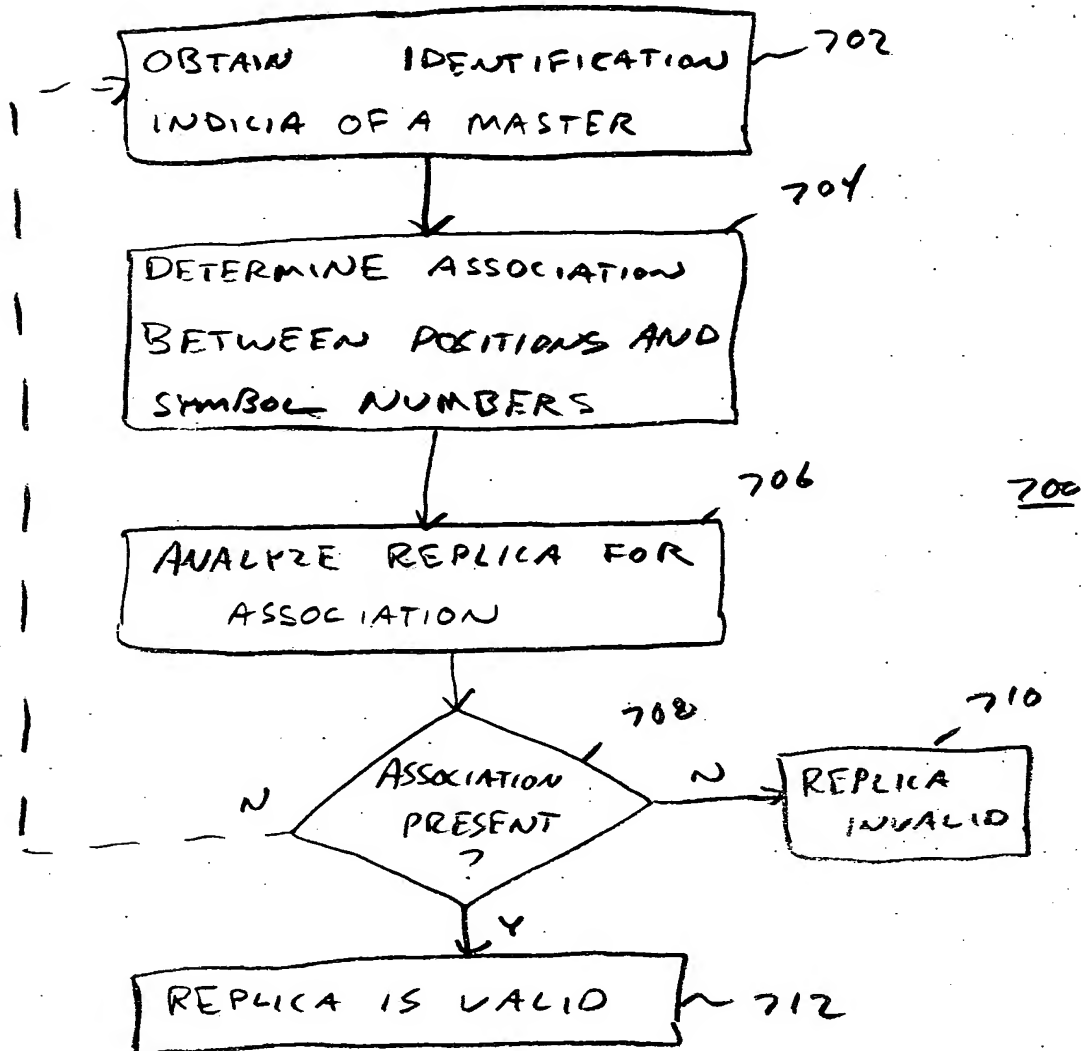 OBTAIN IDENTIFICATION
INDICIA OF A MASTER
702
704
DETERMINE ASSOCIATION
BETWEEN POSITIONS AND
SYMBOL NUMBERS
706
700
ANALYZE REPLICA FOR
ASSOCIATION
708
710
ASSOCIATION
PRESENT
?
N
N
REPLICA
INVALID
Y
REPLICA IS VALID
712